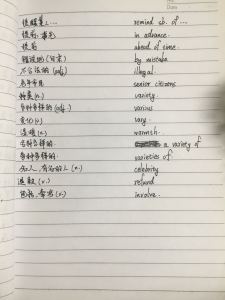 提醒某人… remind sb. of …
提前,事先 in advance.
提前 ahead of time.
错误地 by mistake
不合法的 (adj.) illegal.
老年市民 senior citizens
种类 (n.) variety.
各种各样的 (adj.) various
变化 (v.) vary.
温暖 (n.) warmth.
各种各样的 a variety of
各种各样的. varieties of.
名人,有名的人 (n.) celebrity
退款 (n.) refund
包括, (v.) involve.